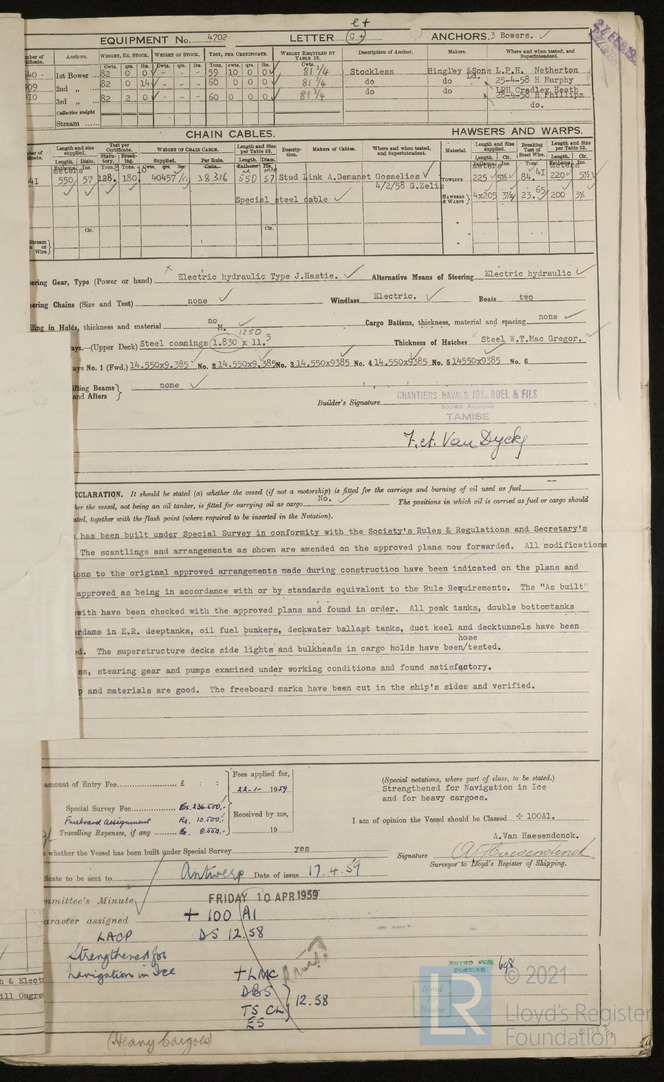 e+
EQUIPMENT No. 4702 LETTER (c+) ANCHORS. 3 Bowers.
Anchors. WEIGHT, EX. STOCK. WEIGHT OF STOCK. TEST, PER CERTIFICATE. WEIGHT REQUIRED BY TABLE 53. Description of Anchor. Makers. Where and when tested, and Superintendent.
1st Bower 82 0 0 - - - 59 10 0 0 81 1/4 Stockless Hingley &Sons Ld. L.P.H. Netherton
2nd 82 0 14 - - - 60 0 0 0 81 1/4 do do 25-4-58 H Murphy
3rd 82 2 0 - - - 60 0 0 0 81 3/4 do do LPH Cradley Heath
H Phillips
do.
Collective weight
Stream
CHAIN CABLES. HAWSERS AND WARPS.
Length and size supplied. Test per Certificate. WEIGHT OF CHAIN CABLE. Length and Size per Table 53. Description. Makers of Cables. Where and when tested, and Superintendent. Material. Length and size supplied. Breaking Test of Steel Wire. Length and Size per Table 53.
Length. Diam. Statutory. Breaking. Supplied. Per Rule. Length. Diam.
550 57 128. 180. 40457 38316 550 57 Stud Link A.Demanet Gosselies TOWLINE 225 5½ 84.41 220 5½
4/2/58 G.Zelis
Special steel cable HAWSERS & WARPS 4x205 3½ 23.65 200 3½
ering Gear, Type (Power or hand) Electric hydraulic Type J.Hastie. Alternative Means of Steering Electric hydraulic
ering Chains (Size and Test) none Windlass Electric. Boats two
ling in Holds, thickness and material no Cargo Battens, thickness, material and spacing none
ays.—(Upper Deck) Steel coamings 1.830 x 11.5 1250 Thickness of Hatches Steel W.T.Mac Gregor.
ays No. 1 (Fwd.) 14.550x9.385 No. 2 14.550x9.385 No. 3 14.550x9385 No. 4 14.550x9385 No. 5 14550x9385 No. 6
ifting Beams and Afters none
Builder's Signature CHANTIERS NAVALS JOS. BOEL & FILS
TAMISE
ECLARATION. It should be stated (a) whether the vessel (if not a motorship) is fitted for the carriage and burning of oil used as fuel --
her the vessel, not being an oil tanker, is fitted for carrying oil as cargo No. The positions in which oil is carried as fuel or cargo should
ated, together with the flash point (where required to be inserted in the Notation).
has been built under Special Survey in conformity with the Society's Rules & Regulations and Secretary's
The scantlings and arrangements as shown are amended on the approved plans now forwarded. All modifications
ons to the original approved arrangements made during construction have been indicated on the plans and
approved as being in accordance with or by standards equivalent to the Rule Requirements. The "As built"
with have been checked with the approved plans and found in order. All peak tanks, double bottomtanks
rdams in E.R. deeptanks, oil fuel bunkers, deckwater ballast tanks, duct keel and decktunnels have been
d. The superstructure decks side lights and bulkheads in cargo holds have been/tested. hose
ss, stearing gear and pumps examined under working conditions and found satisfactory.
p and materials are good. The freeboard marks have been cut in the ship's sides and verified.
amount of Entry Fee £ : : Fees applied for, 22-1- 1959
Special Survey Fee Fr. 236.500,-
Freeboard Assignment Fr. 10.500,- Received by me,
Travelling Expenses, if any Fr. 8.550,- 19
(Special notations, where part of class, to be stated.)
Strengthened for Navigation in Ice
and for heavy cargoes.
I am of opinion the Vessel should be Classed + 100A1.
A.Van Haesendonck.
whether the Vessel has been built under Special Survey yes
Signature
Surveyor to Lloyd's Register of Shipping.
icate to be sent to Antwerp Date of issue 17.4.59
mmittee's Minute FRIDAY 10 APR 1959
aracter assigned + 100 A1
LACP DS 12.58
Strengthened for
navigation in Ice
+ LMC
DBS
TS CL 12.58
ES
(Heavy Cargoes)
NOTED FOR POSTING
h & Elect
ill Ougre
LR © 2021
Lloyd's Register
Foundation